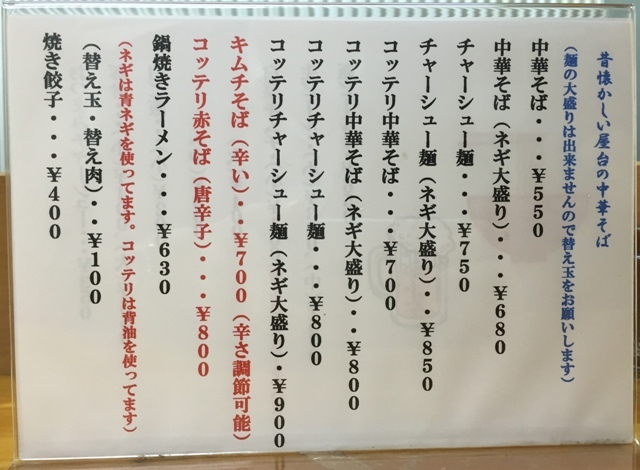 昔懐かしい屋台の中華そば
(麺の大盛りは出来ませんので替え玉をお願いします)
中華そば・・・¥550
中華そば(ネギ大盛り)・・・¥680
チャーシュー麺・・・¥750
チャーシュー麺(ネギ大盛り)・・¥850
コッテリ中華そば・・・¥700
コッテリ中華そば(ネギ大盛り)・・¥800
コッテリチャーシュー麺・・・¥800
コッテリチャーシュー麺(ネギ大盛り)・¥900
キムチそば(辛い)・・¥700(辛さ調節可能)
コッテリ赤そば(唐辛子)・・・¥800
鍋焼きラーメン・・・¥630
(ネギは青ネギを使ってます。コッテリは背油を使ってます)
(替え玉・替え肉)・・¥100
焼き餃子・・・¥400